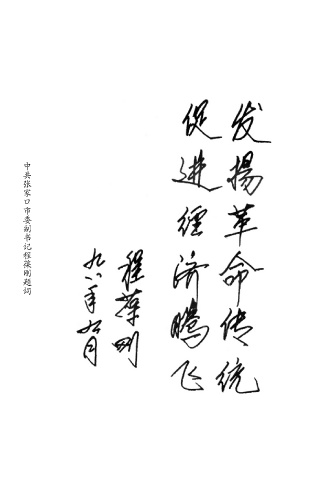 发揚革命传统
促進經济腾飞
程葆刚
九八年九月
中共张家口市委副书记程葆刚题词